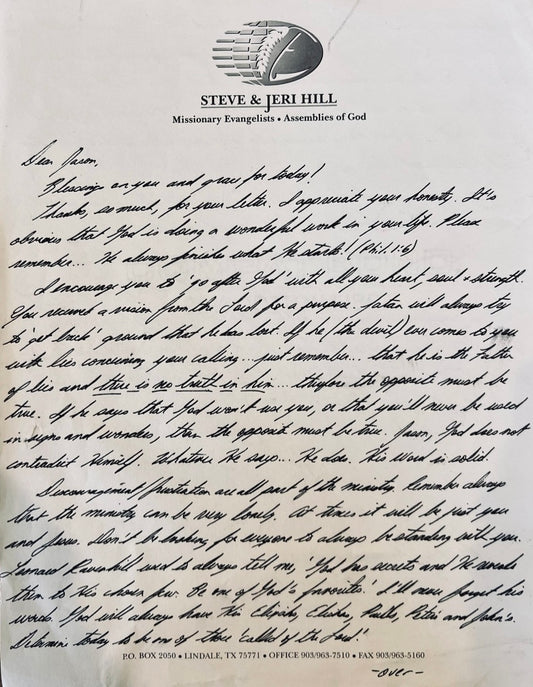 STEVE & JERI HILL
Missionary Evangelists • Assemblies of God
Dear Jason,
Blessings on you and grace for today!
Thanks, so much, for your letter. I appreciate your honesty. It's
obvious that God is doing a wonderful work in your life. Please
remember... He always finishes what He starts! (Phil. 1:6)
I encourage you to 'go after God' with all your heart, soul & strength.
You received a vision from the Lord for a purpose. Satan will always try
to 'get back' ground that he has lost. If he (the devil) ever comes to you
with lies concerning your calling... just remember... that he is the Father
of lies and there is no truth in him... therefore the opposite must be
true. If he says that God won't use you, or that you'll never be used
in signs and wonders, then the opposite must be true. Jason, God does not
contradict Himself. Whatever He says... He does. His word is solid.
Discouragement, frustration are all part of the ministry. Remember always
that the ministry can be very lonely. At times it will be just you
and Jesus. Don't be looking for everyone to always be standing with you.
Leonard Ravenhill used to always tell me, 'God has secrets and He reveals
them to His chosen few. Be one of God's favorites.' I'll never forget his
words. God will always have His Elijahs, Elishas, Pauls, Peters and John's.
Determine today to be one of those 'called of the Lord.'
P.O. BOX 2050 • LINDALE, TX 75771 • OFFICE 903/963-7510 • FAX 903/963-5160
-over-